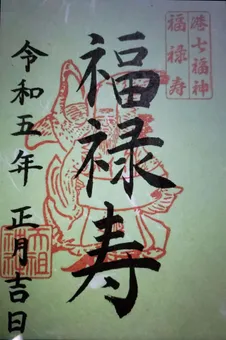 港七福神
福禄寿
福禄寿
令和五年 正月吉日